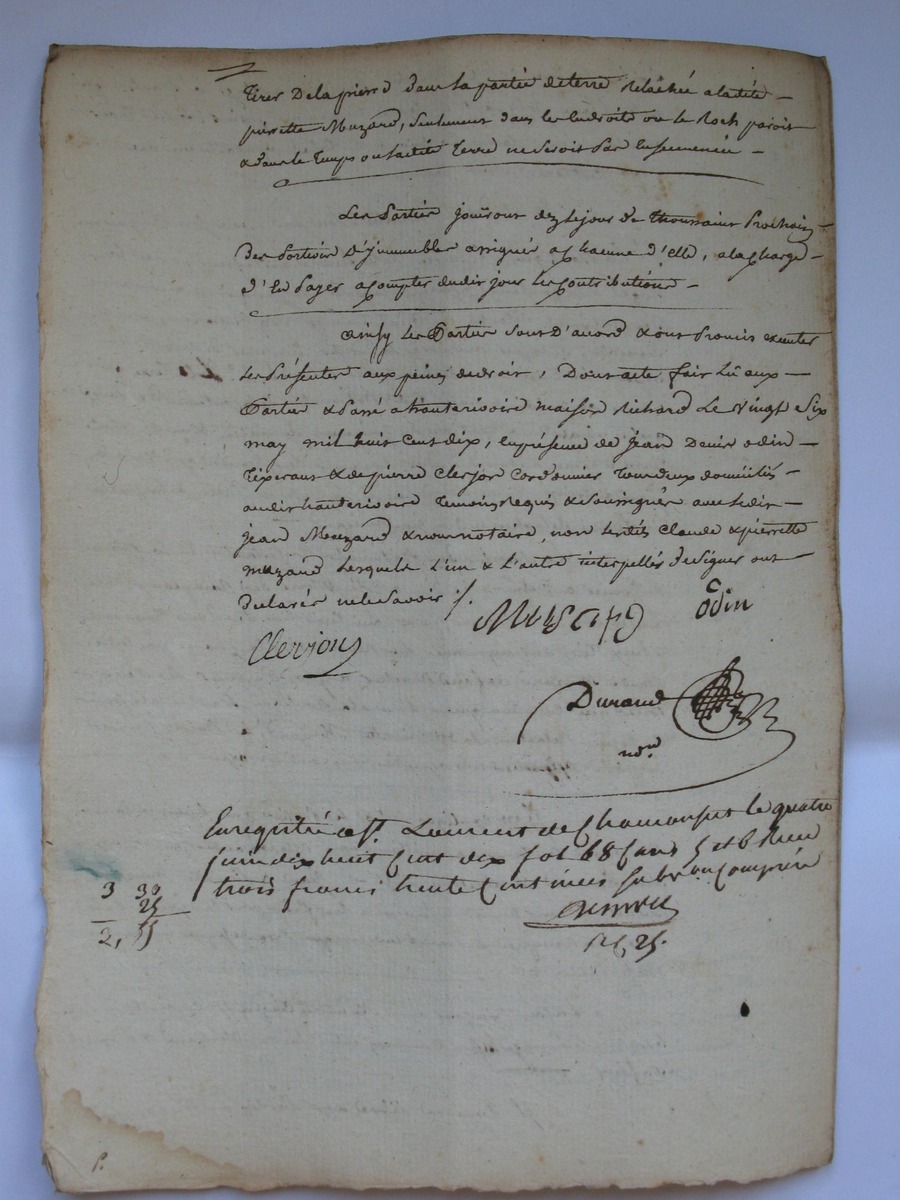 tirer de la pierre dans la partie de terre relachée a ladite
pierrette Muzard, seulement dans les endroits ou le Roch paroit
& dans le temps ou ladite terre ne seroit pas ensemencée
Les Parties jouiront dez le jour de Thoussaint Prochain
des Portions d'immeubles assignés a chacune d'elle, a la charge
d'en payer a compter dudit jour les contributions
Ainsy les Parties sont d'acord & ont promis exécuter
les présentes aux peines de droit, Dont acte fait lû aux
Parties & passé a hauterivoire maison Richard Le vingt Six
may mil huit cent dix, en présence de jean Denis odin
Tixerant & de pierre Clerjon Cordonnier Tous deux domiciliés
audit hauterivoire Temoins requis & soussignés avec ledit
jean Mouzard & nous notaire, non lesdits Claude & pierrette
muzard lesquels L'un & L'autre interpellés de signer ont
declarés ne le savoir ./.
Clerjon
Musard
Odin
Durand
nore
Enregistré a St. Laurent de Chamousset le quatre
juin dix huit Cent dix fol 68 Case 5 et 6 Reçu
trois francs trente Centimes subvon Comprise
3 30
25
2, 55
25.